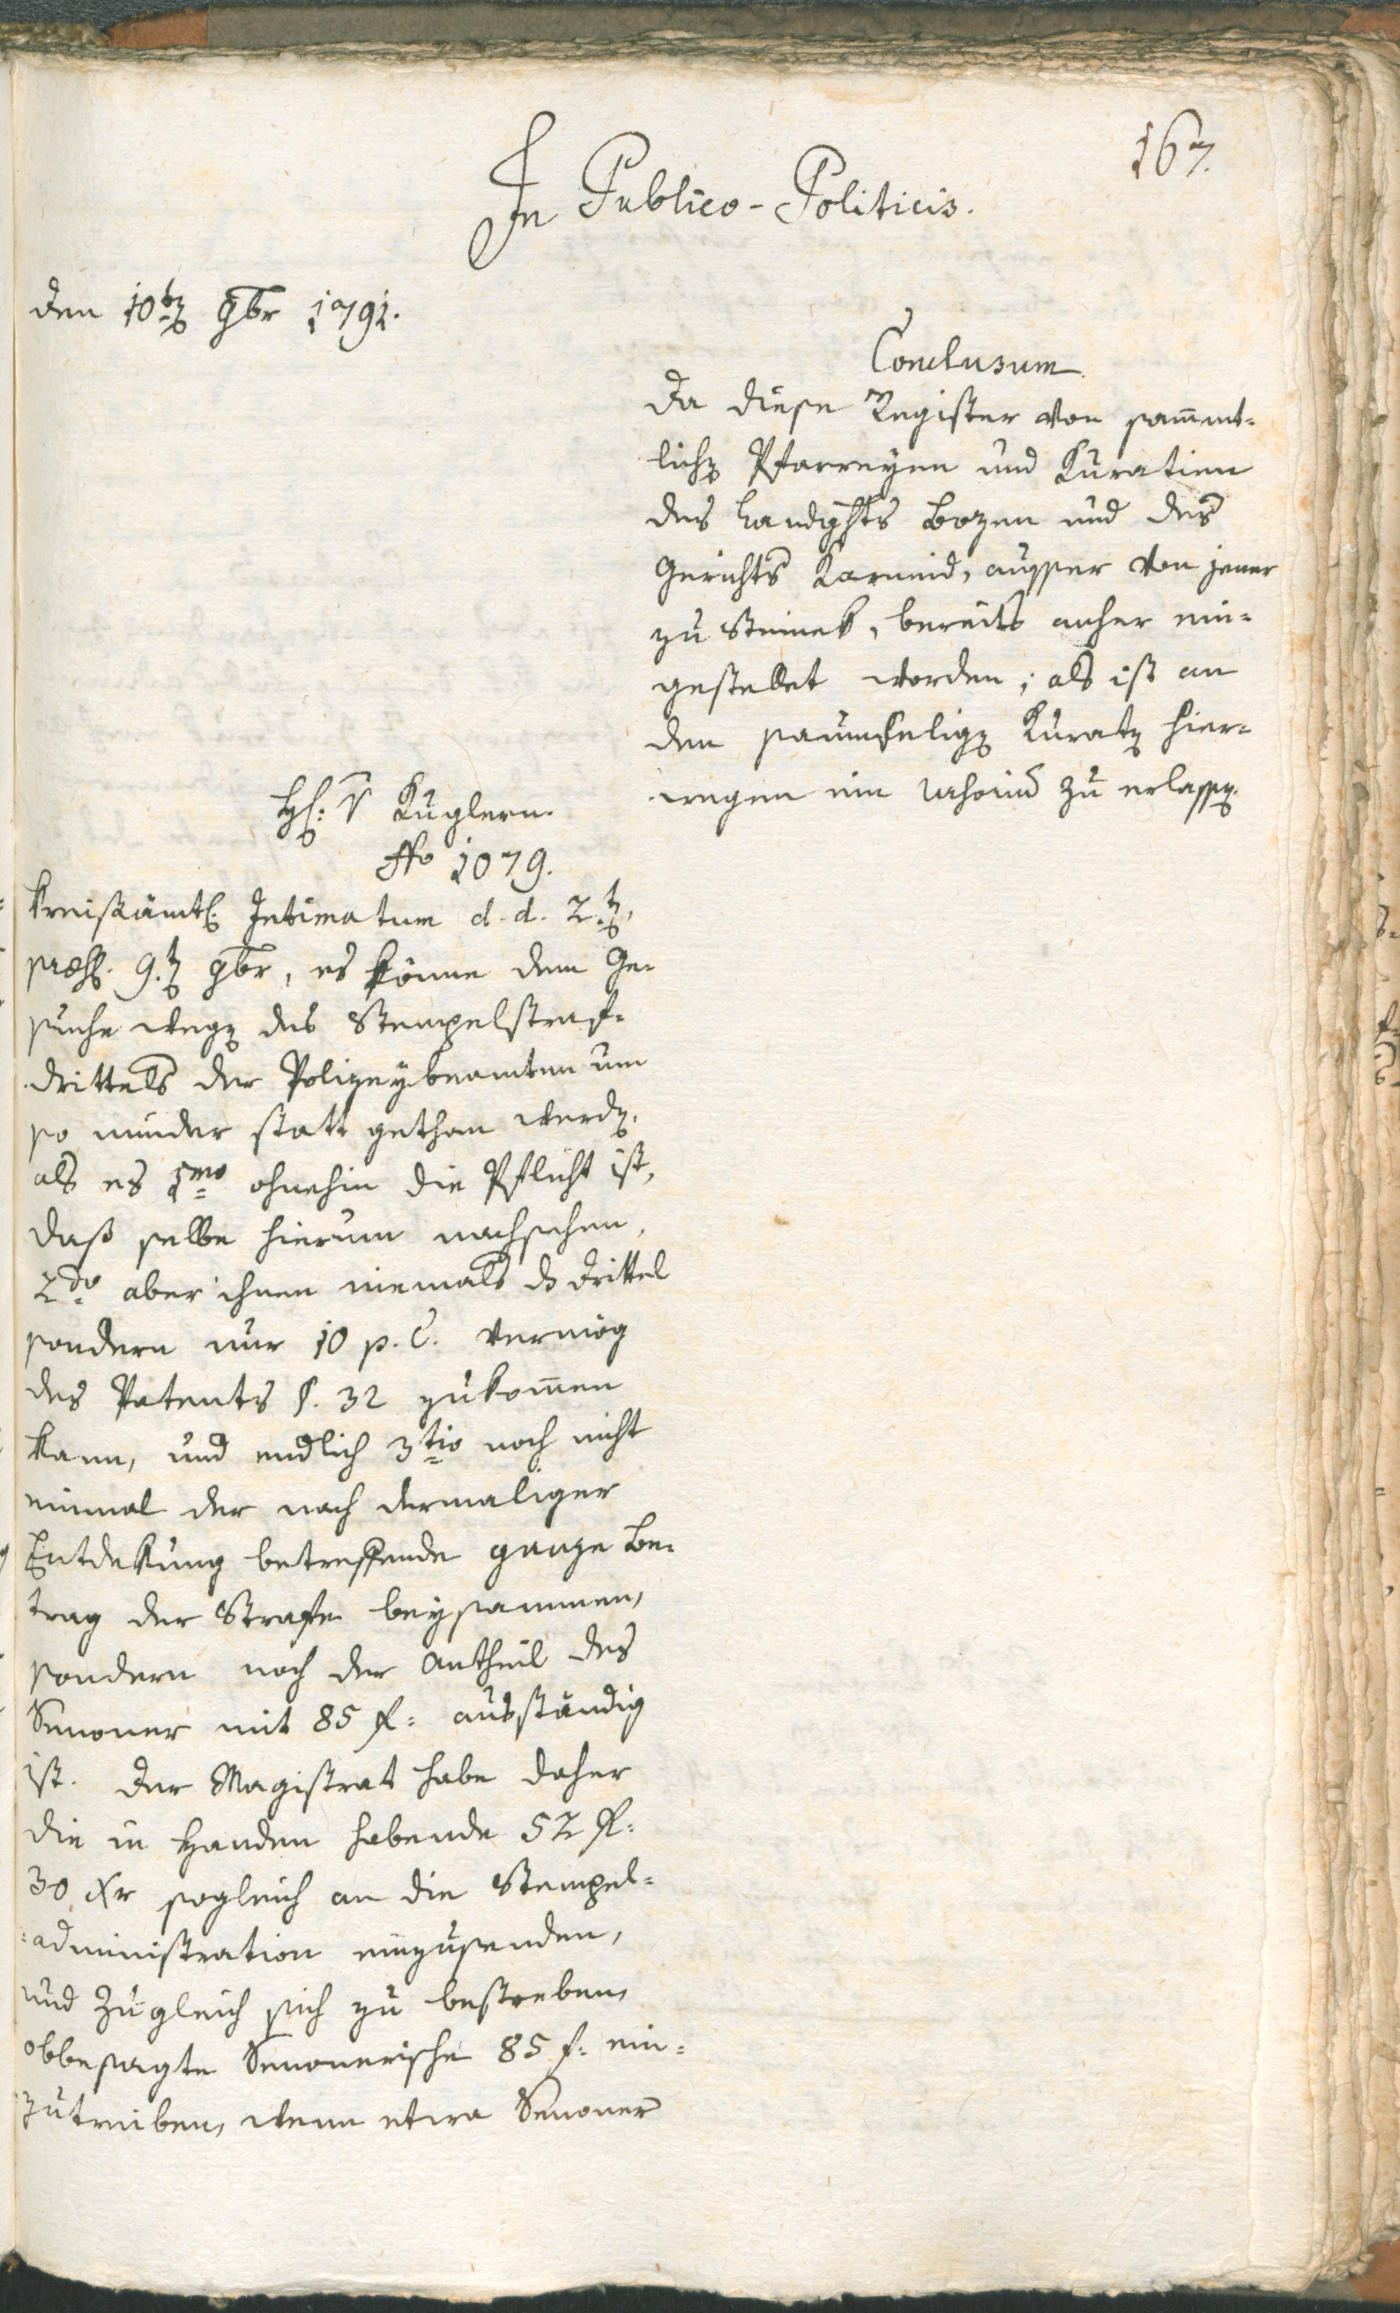 167.
In Publico-Politicis.
den 10ten 9br 1791.
Conclusum
Da diese Register von sammt-
lichen Pfarreyen und Kuratien
des Landghts Bozen und des
Gerichts Karneid, ausser von jener
zu Steinek, bereits anher ein-
gestellet worden; als ist an
den saumseligen Kuraten hier-
wegen ein zu erlassen.
Kuglern.
No 1079.
Kreisämtl. Intimatum d. d. 2ten,
præs. 9.ten 9br, es könne dem Ge-
suche wegen des Stempelstraf-
drittels der Polizeybeamten um
so minder statt gethan werden.
als es 1mo ohnehin die Pflicht ist,
daß selbe hierum nachsehen,
2do aber ihnen niemals das Drittel
sondern nur 10 p. C. vermög
des Patents §. 32 zukommen
kann, und endlich 3tio noch nicht
einmal der nach dermaliger
Entdekung betreffende ganze Be-
trag der Strafe beysammen,
sondern noch der Antheil des
Senoner mit 85 f: ausständig
ist. Der Magistrat habe daher
die in Handen habende 52 f:
30 Xr sogleich an die Stempel-
administration einzusenden,
und zugleich sich zu bestreben,
obbesagte Senonerische 85 f: ein-
zutreiben, wenn etwa Senoner